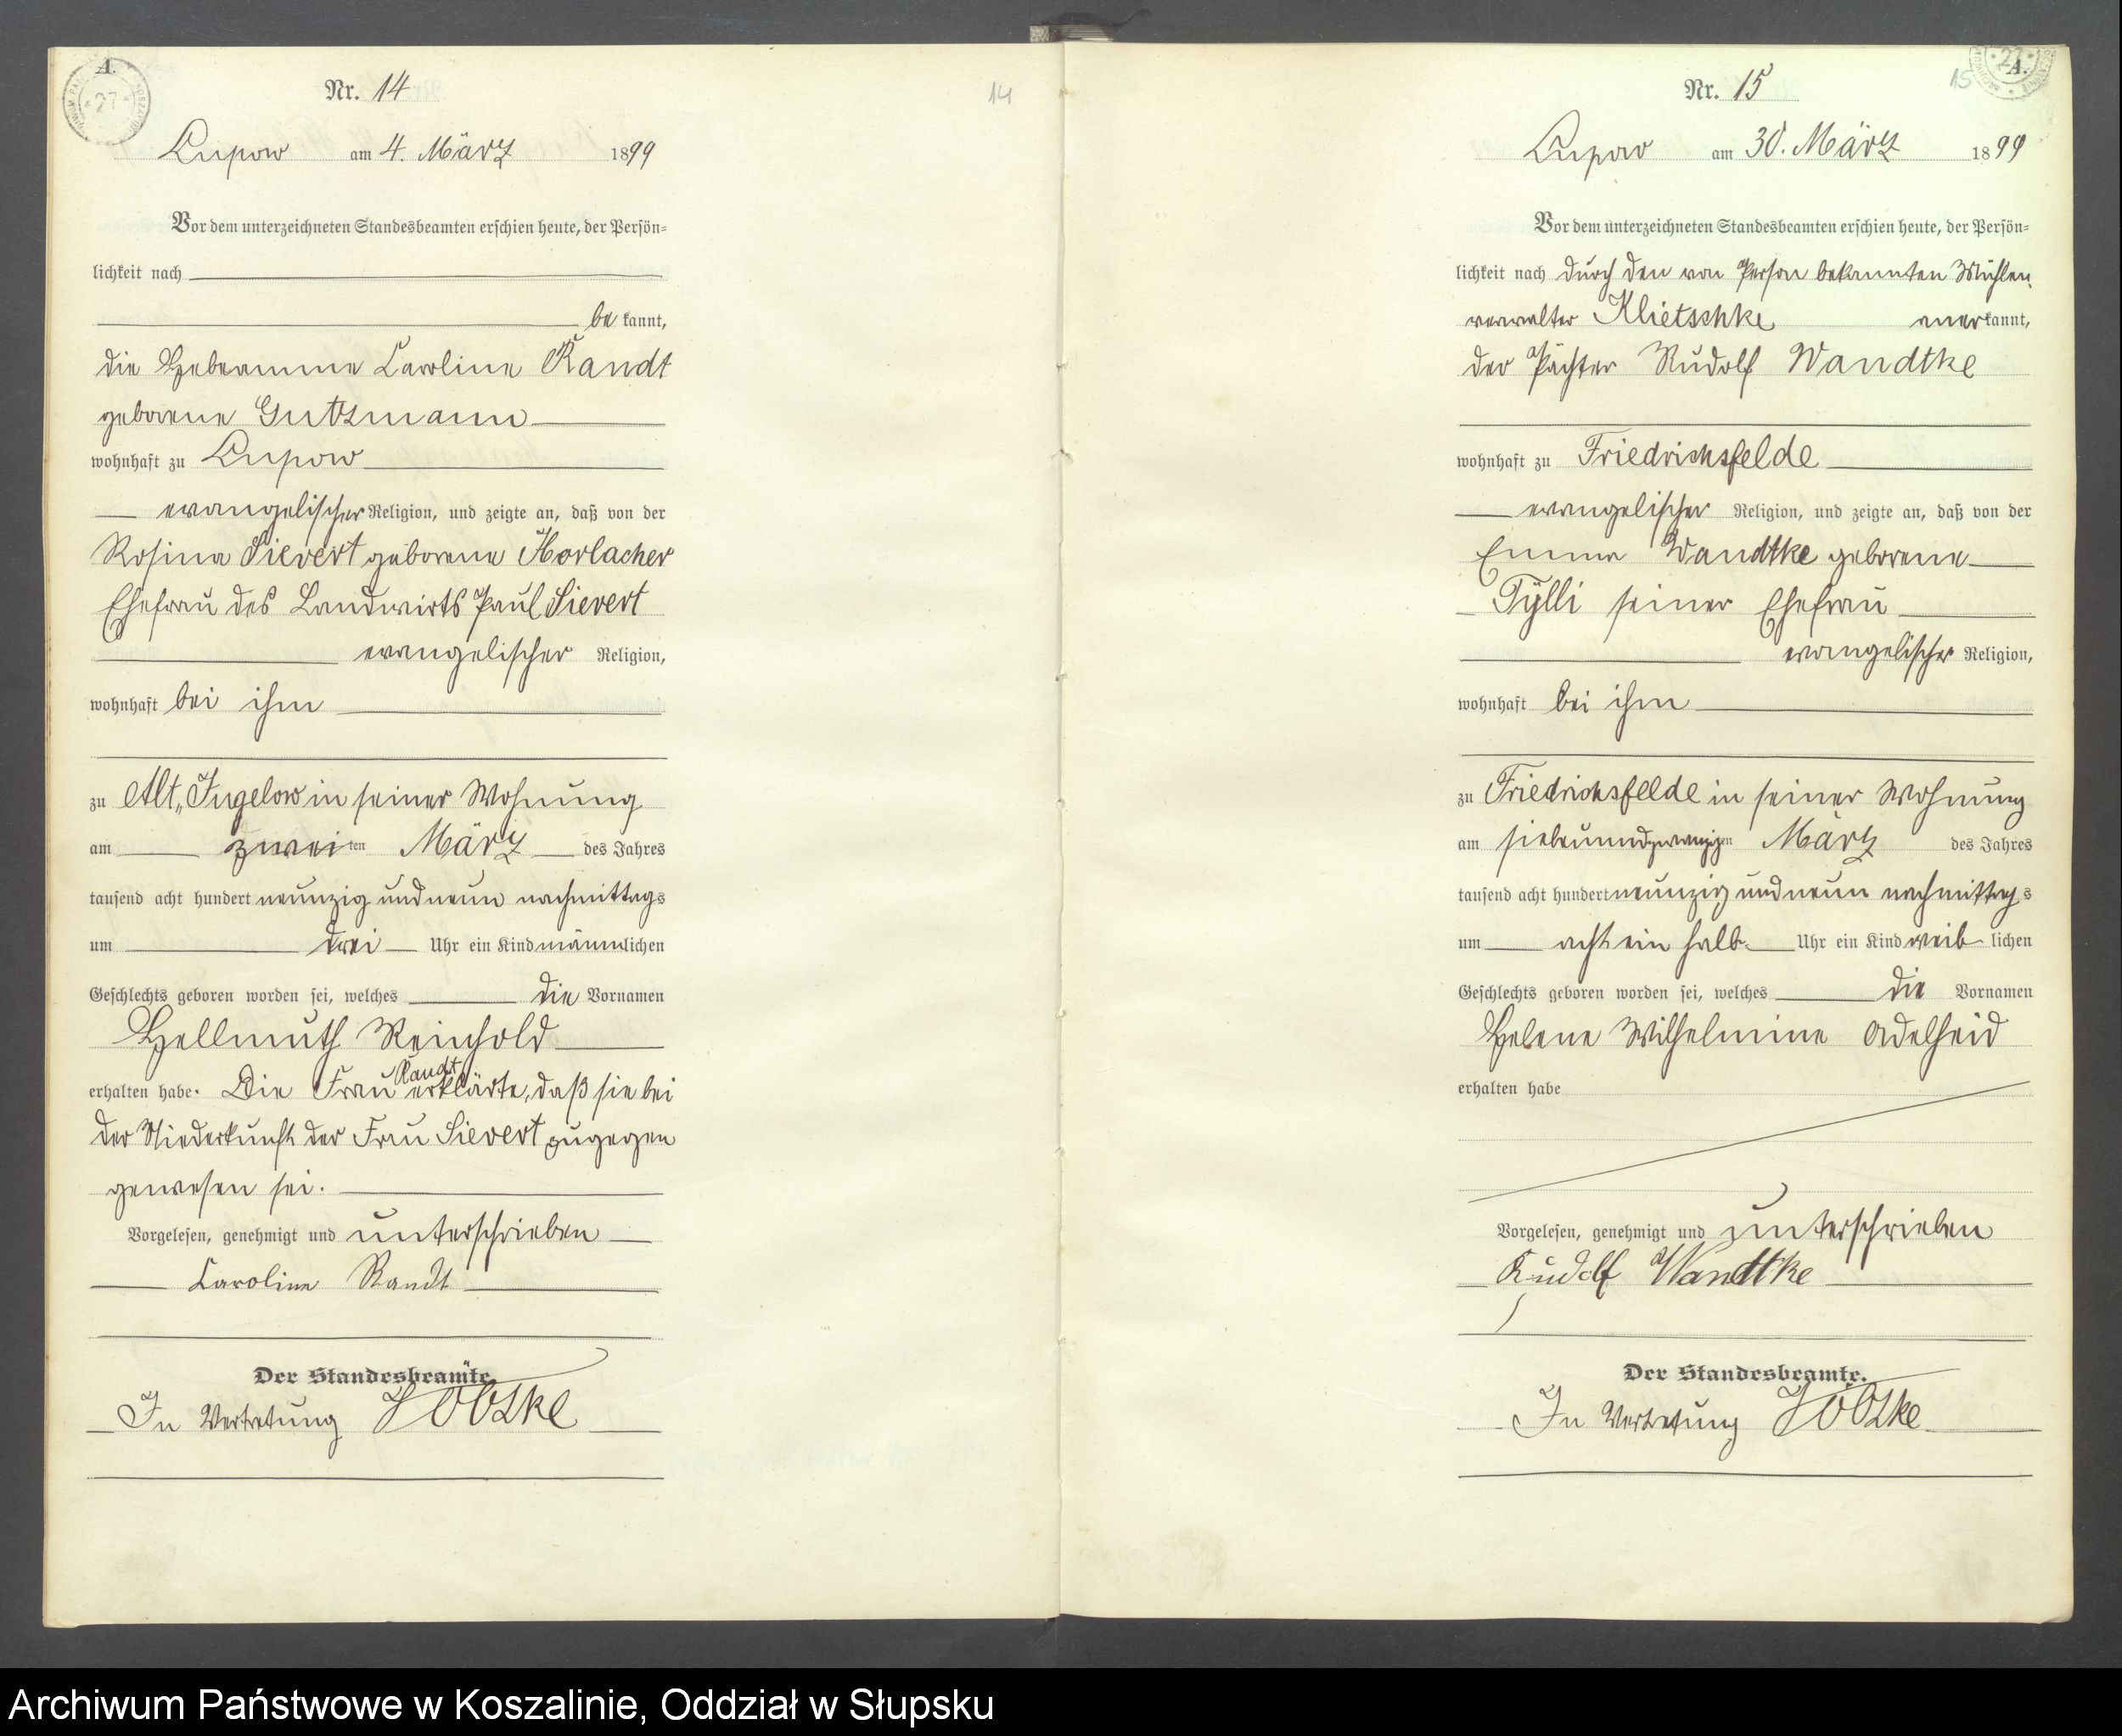 A.
27
Nr. 14
Lupow am 4. März 1899
Vor dem unterzeichneten Standesbeamten erschien heute, der Persön-
lichkeit nach
be kannt,
die Hebeamme Caroline Randt
geborene Gutzmann
wohnhaft zu Lupow
evangelischer Religion, und zeigte an, daß von der
Rosina Sievert geborene Horlacher
Ehefrau des Landwirts Paul Sievert
evangelischer Religion,
wohnhaft bei ihm
zu Alt„Jugelow in seiner Wohnung
am zweiten März des Jahres
tausend acht hundert neunzig und neun nachmittags
um drei Uhr ein Kind männlichen
Geschlechts geboren worden sei, welches die Vornamen
Hellmuth Reinhold
erhalten habe. Die Frau Randt erklärte, daß sie bei
der Niederkunft der Frau Sievert zugegen
gewesen sei.
Vorgelesen, genehmigt und unterschrieben
Caroline Randt
Der Standesbeamte.
In Vertretung
14
15
27
A.
Nr. 15
Lupow am 30. März 1899
Vor dem unterzeichneten Standesbeamten erschien heute, der Persön-
lichkeit nach durch den von Person bekannten Mühlen-
verwalter Klietschke anerkannt,
der Pächter Rudolf Wandtke
wohnhaft zu Friedrichsfelde
evangelischer Religion, und zeigte an, daß von der
Emma Wandtke geborene
Tylli seiner Ehefrau
evangelischer Religion,
wohnhaft bei ihm
zu Friedrichsfelde in seiner Wohnung
am siebenundzwanzigsten März des Jahres
tausend acht hundert neunzig und neun nachmittags
um acht ein halb Uhr ein Kind weib lichen
Geschlechts geboren worden sei, welches die Vornamen
Helene Wilhelmine Adelheid
erhalten habe
Vorgelesen, genehmigt und unterschrieben
Rudolf Wandtke
Der Standesbeamte.
In Vertretung
Archiwum Państwowe w Koszalinie, Oddział w Słupsku